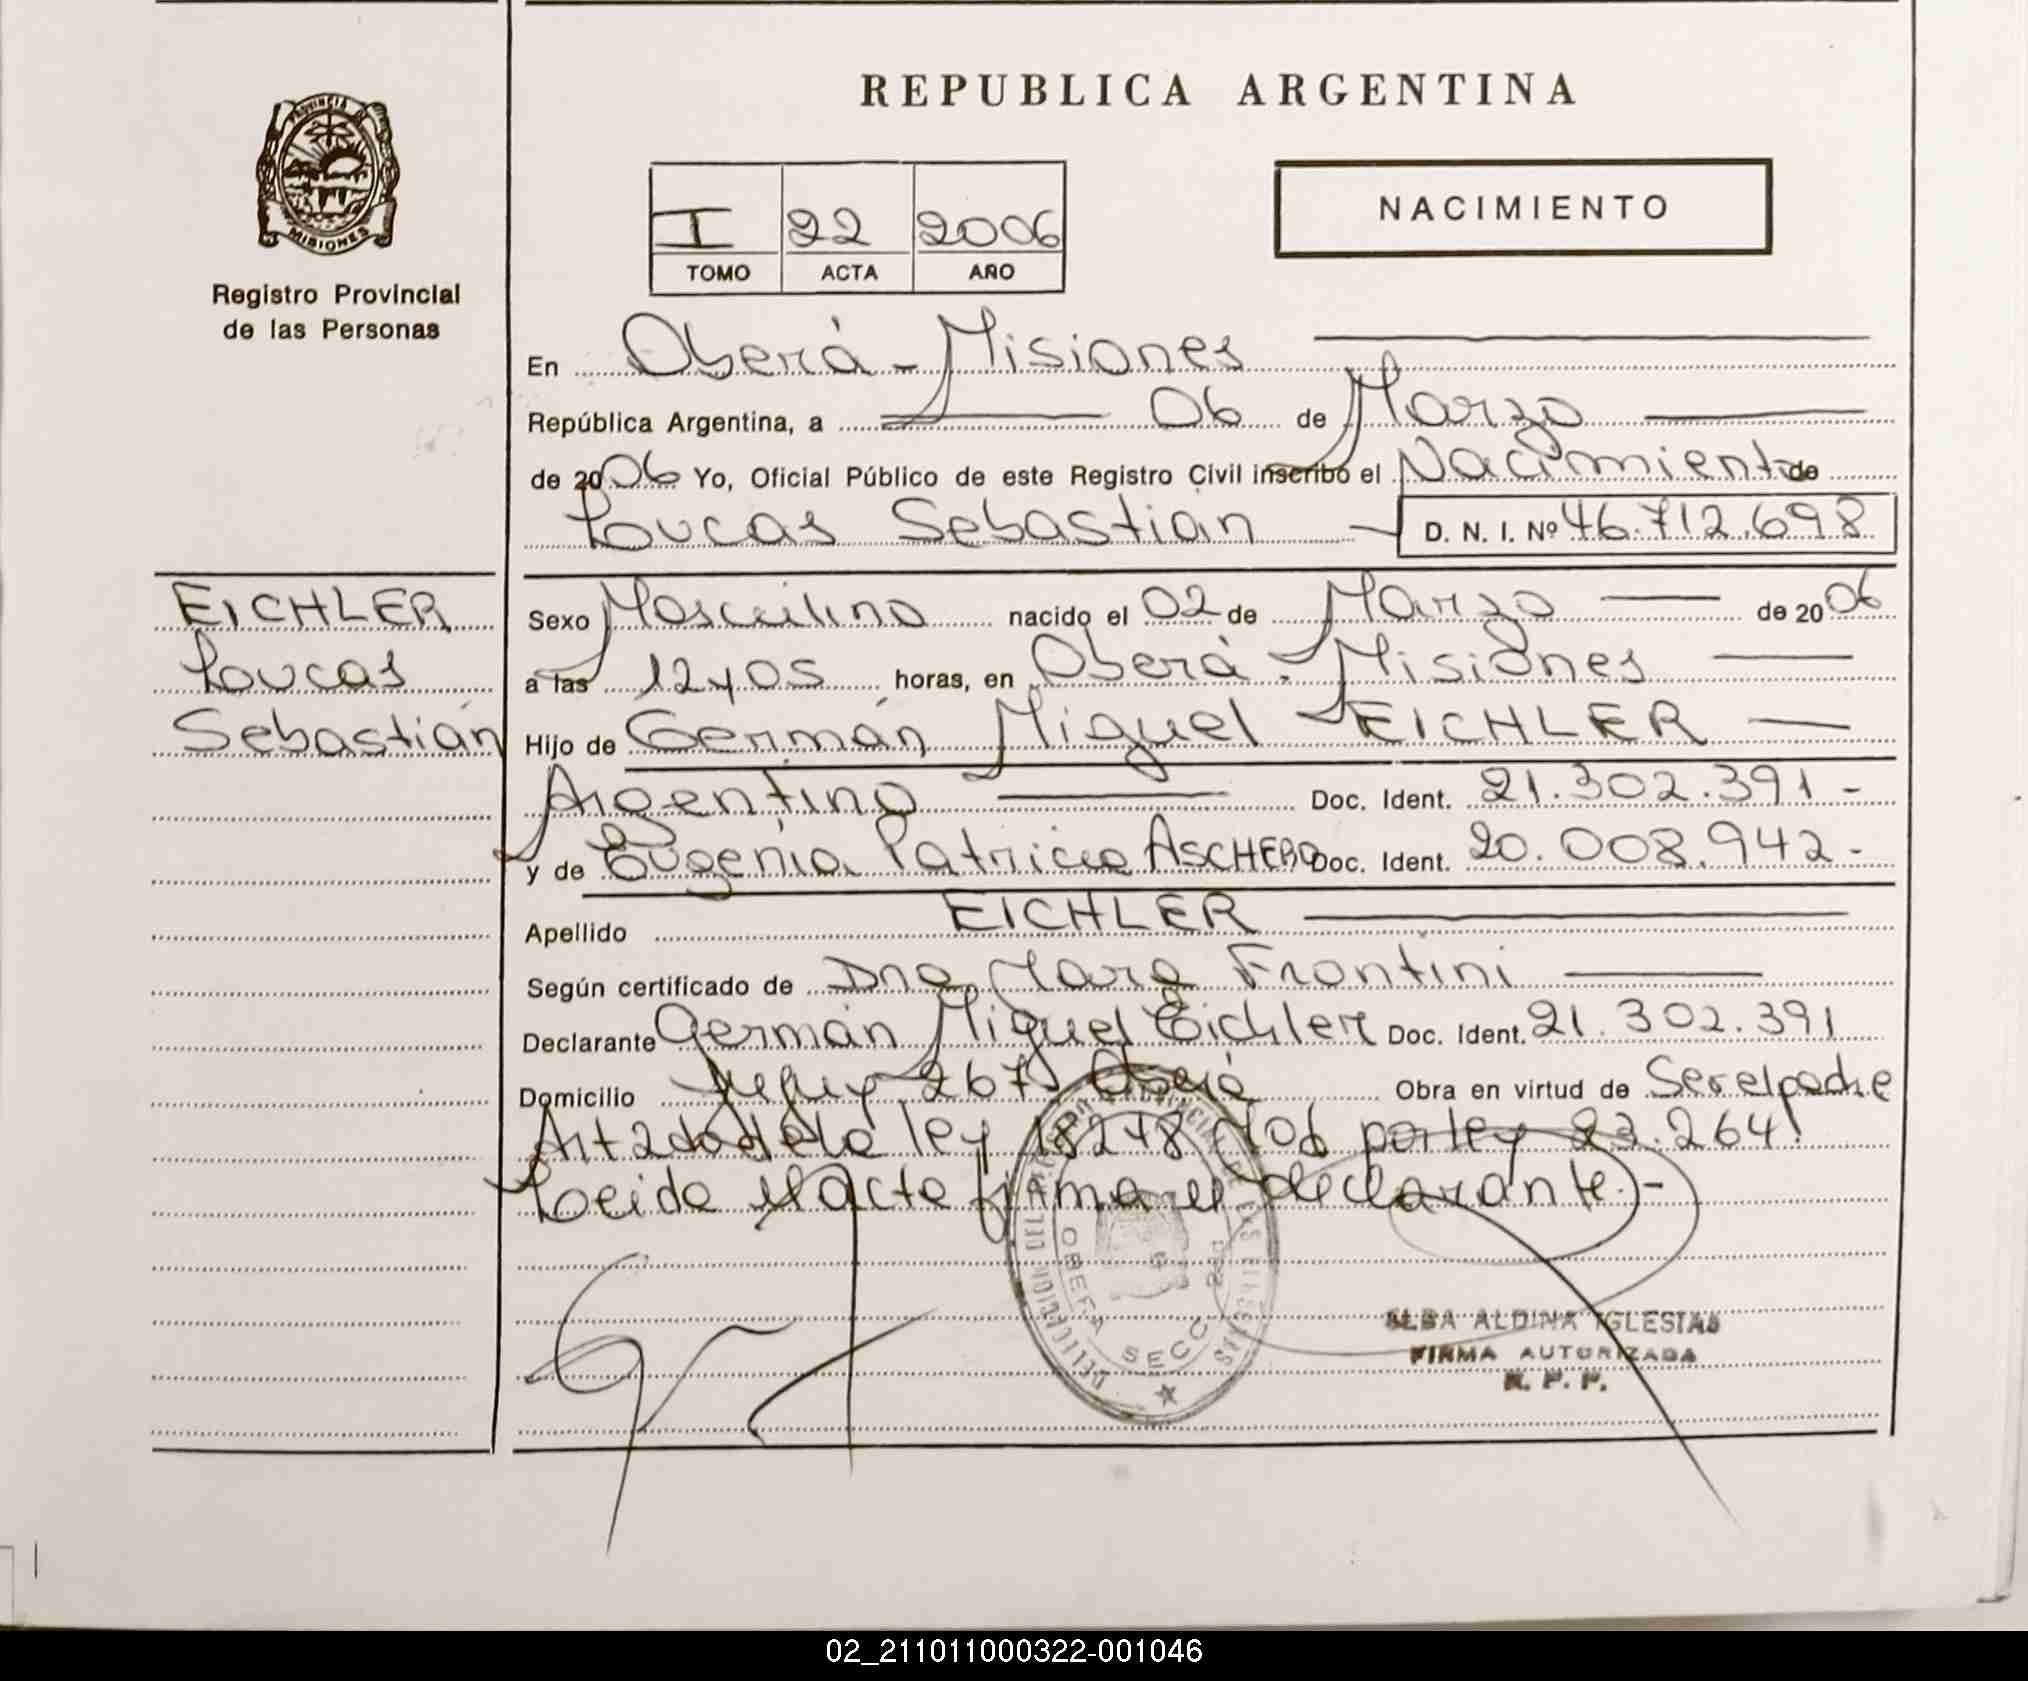 REPUBLICA ARGENTINA
PROVINCIA DE
MISIONES
Registro Provincial
de las Personas
I 22 2006
TOMO ACTA AÑO
NACIMIENTO
En Oberá - Misiones
República Argentina, a 06 de Marzo
de 2006 Yo, Oficial Público de este Registro Civil inscribo el Nacimiento de
Loucas Sebastian D. N. I. Nº 46.712.698
EICHLER
Loucas
Sebastián
Sexo Masculino nacido el 02 de Marzo de 2006
a las 12 y 05 horas, en Oberá - Misiones
Hijo de Germán Miguel EICHLER
Argentino Doc. Ident. 21.302.391 -
y de Eugenia Patricia ASCHERO Doc. Ident. 20.008.942 -
Apellido EICHLER
Según certificado de Dna Mara Frontini
Declarante Germán Miguel Eichler Doc. Ident. 21.302.391
Domicilio 267 Oberá Obra en virtud de Ser el padre
Art 2 de la ley 18248 Mod por ley 23.264.
Leida el acta firma el declarante.-
OBERA SECC
ELBA ALDINA IGLESIAS
FIRMA AUTORIZADA
R. P. P.
02_211011000322-001046